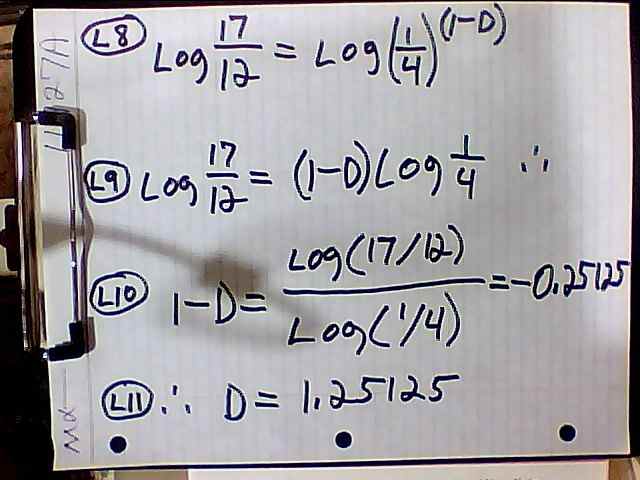 L8 Log 17/12 = Log(1/4)^(1-D)
L9 Log 17/12 = (1-D)Log 1/4 ∴
L10 1-D = Log(17/12)/Log(1/4) = -0.25125
L11 ∴ D = 1.25125